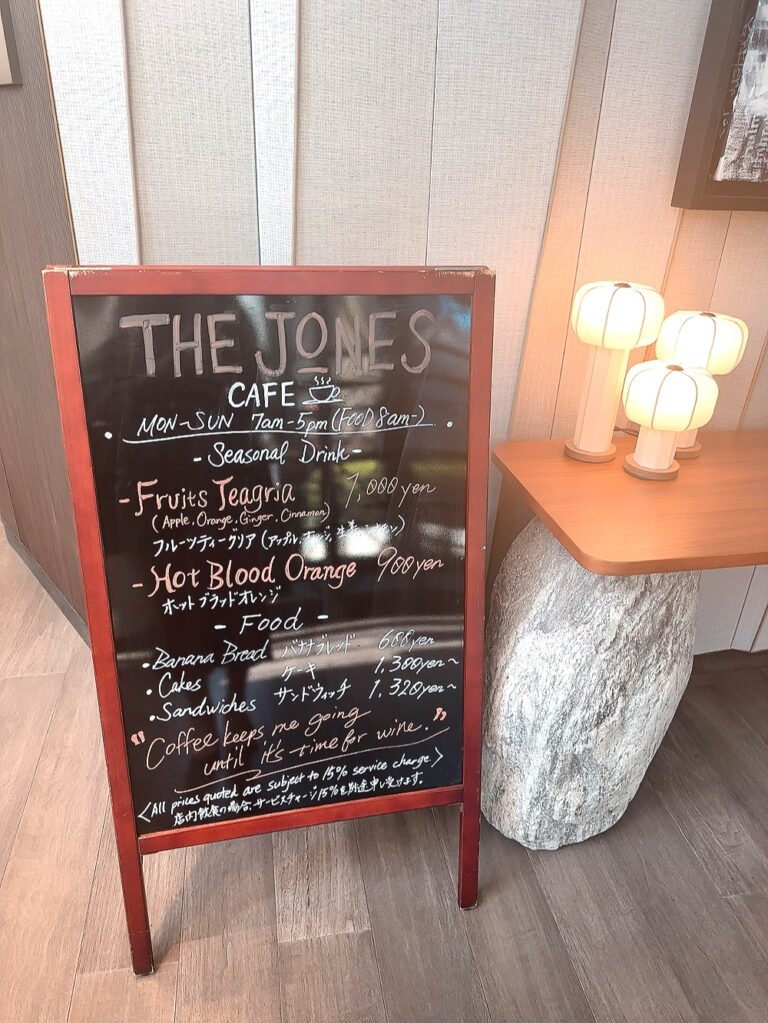 THE JONES
CAFE
MON~SUN 7am-5pm (FOOD 8am-)
- Seasonal Drink -
- Fruits Teagria 1,000yen
(Apple, Orange, Ginger, Cinnamon)
フルーツティーグリア (アップル、オレンジ、生姜、シナモン)
- Hot Blood Orange 900yen
ホットブラッドオレンジ
- Food -
• Banana Bread バナナブレッド 600yen
• Cakes ケーキ 1,300yen~
• Sandwiches サンドウィッチ 1,320yen~
"Coffee keeps me going
until it's time for wine."
<All prices quoted are subject to 15% service charge.>
店内飲食の場合、サービスチャージ15%を別途申し受けます。